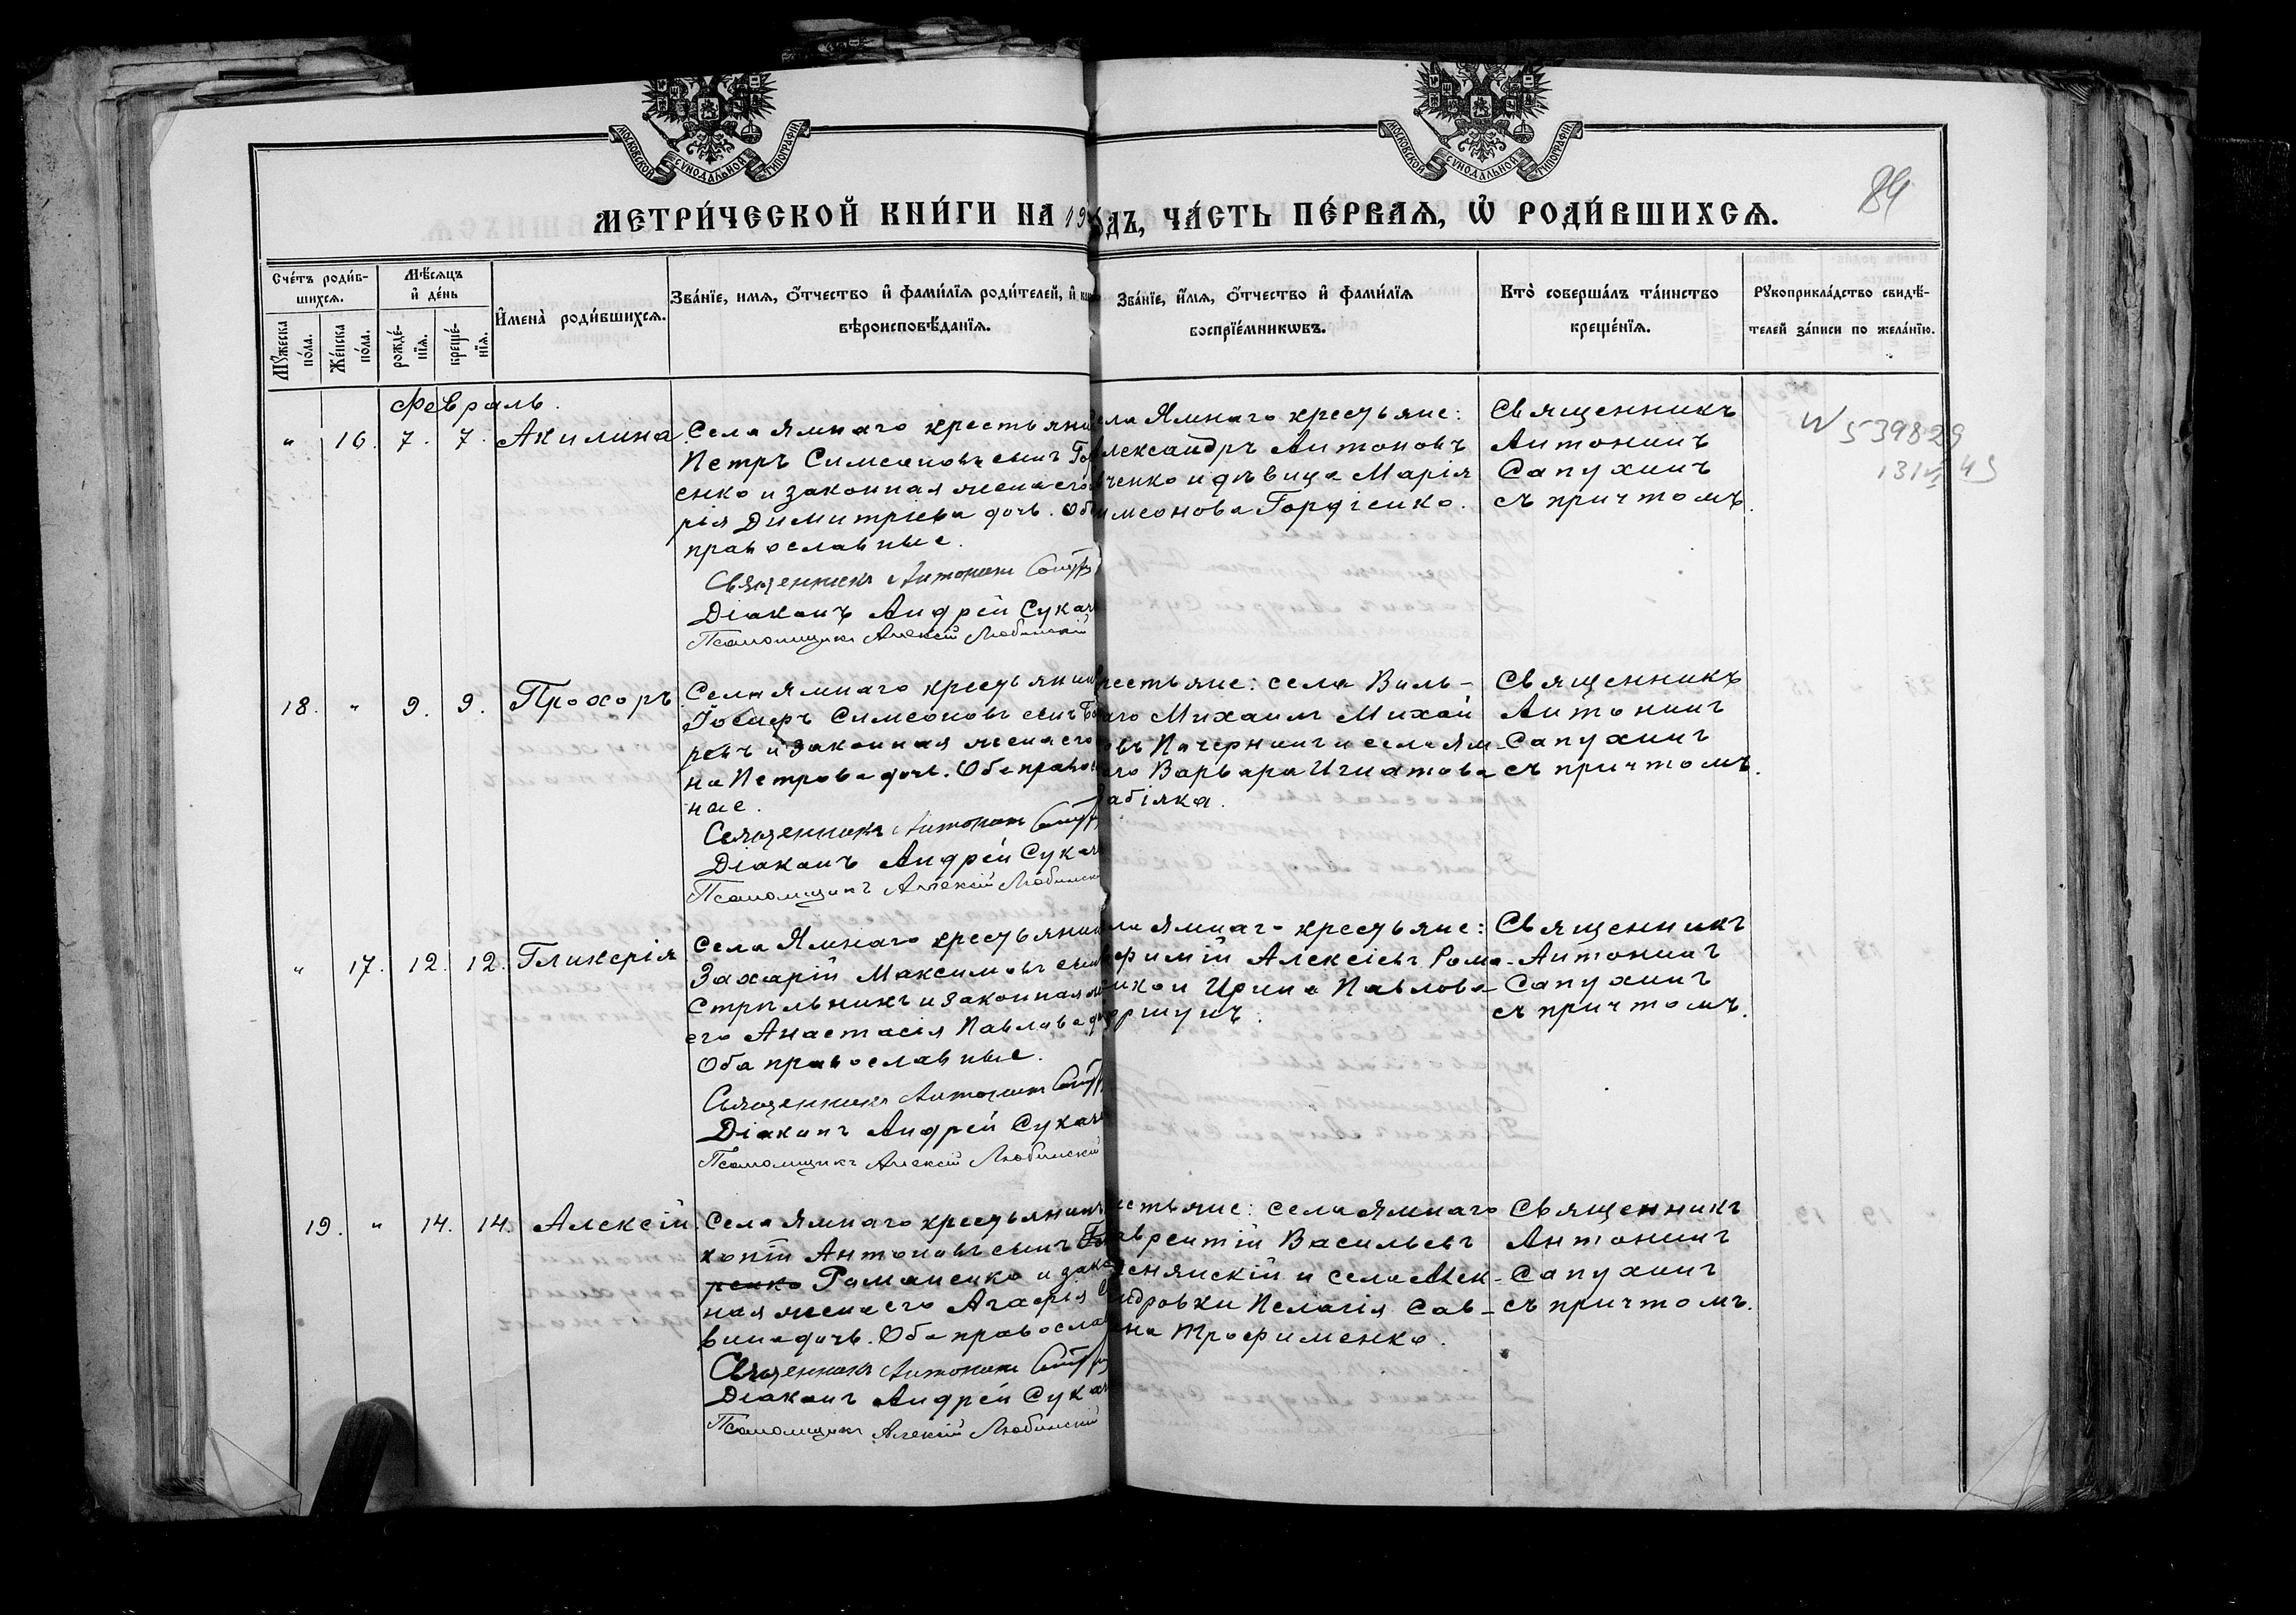 МОСКОВСКОЙ СУНОДАЛЬНОЙ ТИПОГРАФІИ
МОСКОВСКОЙ СУНОДАЛЬНОЙ ТИПОГРАФІИ
84
МЕТРИ́ЧЕСКОЙ КНИ́ГИ НА 19
ДЪ, ЧА́СТЬ ПЕ́РВАЯ, Ѿ РОДИ́ВШИХСЯ.
Сче́тъ роди́в-
шихся.
Мꙋ́жеска по́ла.
Же́нска по́ла.
Мѣ́сяцъ и҆ де́нь
рожде́-нїя.
креще́-нїя.
И҆мена̀ роди́вшихся.
Зва́нїе, имя, ѻ҆́тчество и҆ фами́лїя роди́телей, и҆
вѣроисповѣ́данїя.
Зва́нїе, и҆́мя, ѻ҆́тчество и҆ фами́лїя
воспрїе́мникωвъ.
Кто̀ соверша́лъ та́инство
креще́нїя.
Рꙋкоприкла́дство свидѣ́-
телей за́писи по жела́нїю.
Февраль.
" 16. 7. 7. Акилина
Села Ямнаго крестьянин
Петръ Симеоновъ сынъ Гор
енко и законная жена его
рія Димитріева дочь. Об
православные.
Священникъ Антонин
Діаконъ Андрей Сукач
Псаломщикъ Алексій Любинскій
ела Ямнаго крестьяне:
лександръ Антоновъ
ченко и дѣвица Марія
имеонова Гордіенко.
Священникъ
Антонинъ
Сапухинъ
съ причтомъ.
N 539829
18. " 9. 9. Прохоръ
Села Ямнаго крестьянин
Іосифъ Симеоновъ сынъ
ревъ и законная жена его
на Петрова дочь. Оба право
ные.
Священникъ Антонин
Діаконъ Андрей Сукач
Псаломщикъ Алексій Любинск
рестьяне: села Виль-
аго Михаилъ Михай
овъ Пачернинъ и села Ям-
аго Варвара Игнатова
абіяка.
Священникъ
Антонинъ
Сапухинъ
съ причтомъ.
" 17. 12. 12. Гликерія
Села Ямнаго крестьянин
Захарій Максимовъ сын
Стрѣльникъ и законная ж
его Анастасія Павлова д
Оба православные.
Священникъ Антонин
Діаконъ Андрей Сукач
Псаломщикъ Алексій Любинскій
ла Ямнаго крестьяне:
фимій Алексіевъ Рома-
нко и Ирина Павлова
ршунъ.
Священникъ
Антонинъ
Сапухинъ
съ причтомъ.
19. " 14. 14. Алексій
Села Ямнаго крестьянинъ
копій Антоновъ сынъ
ренко Романенко и зако
ная жена его Агафія
вина дочь. Оба православ
Священникъ Антонин
Діаконъ Андрей Сукач
Псаломщикъ Алексій Любинскій
естьяне: села Ямнаго
аврентій Васильевъ
енянскій и села Алек-
ндровки Пелагія Сав-
ина Трофименко.
Священникъ
Антонинъ
Сапухинъ
съ причтомъ.